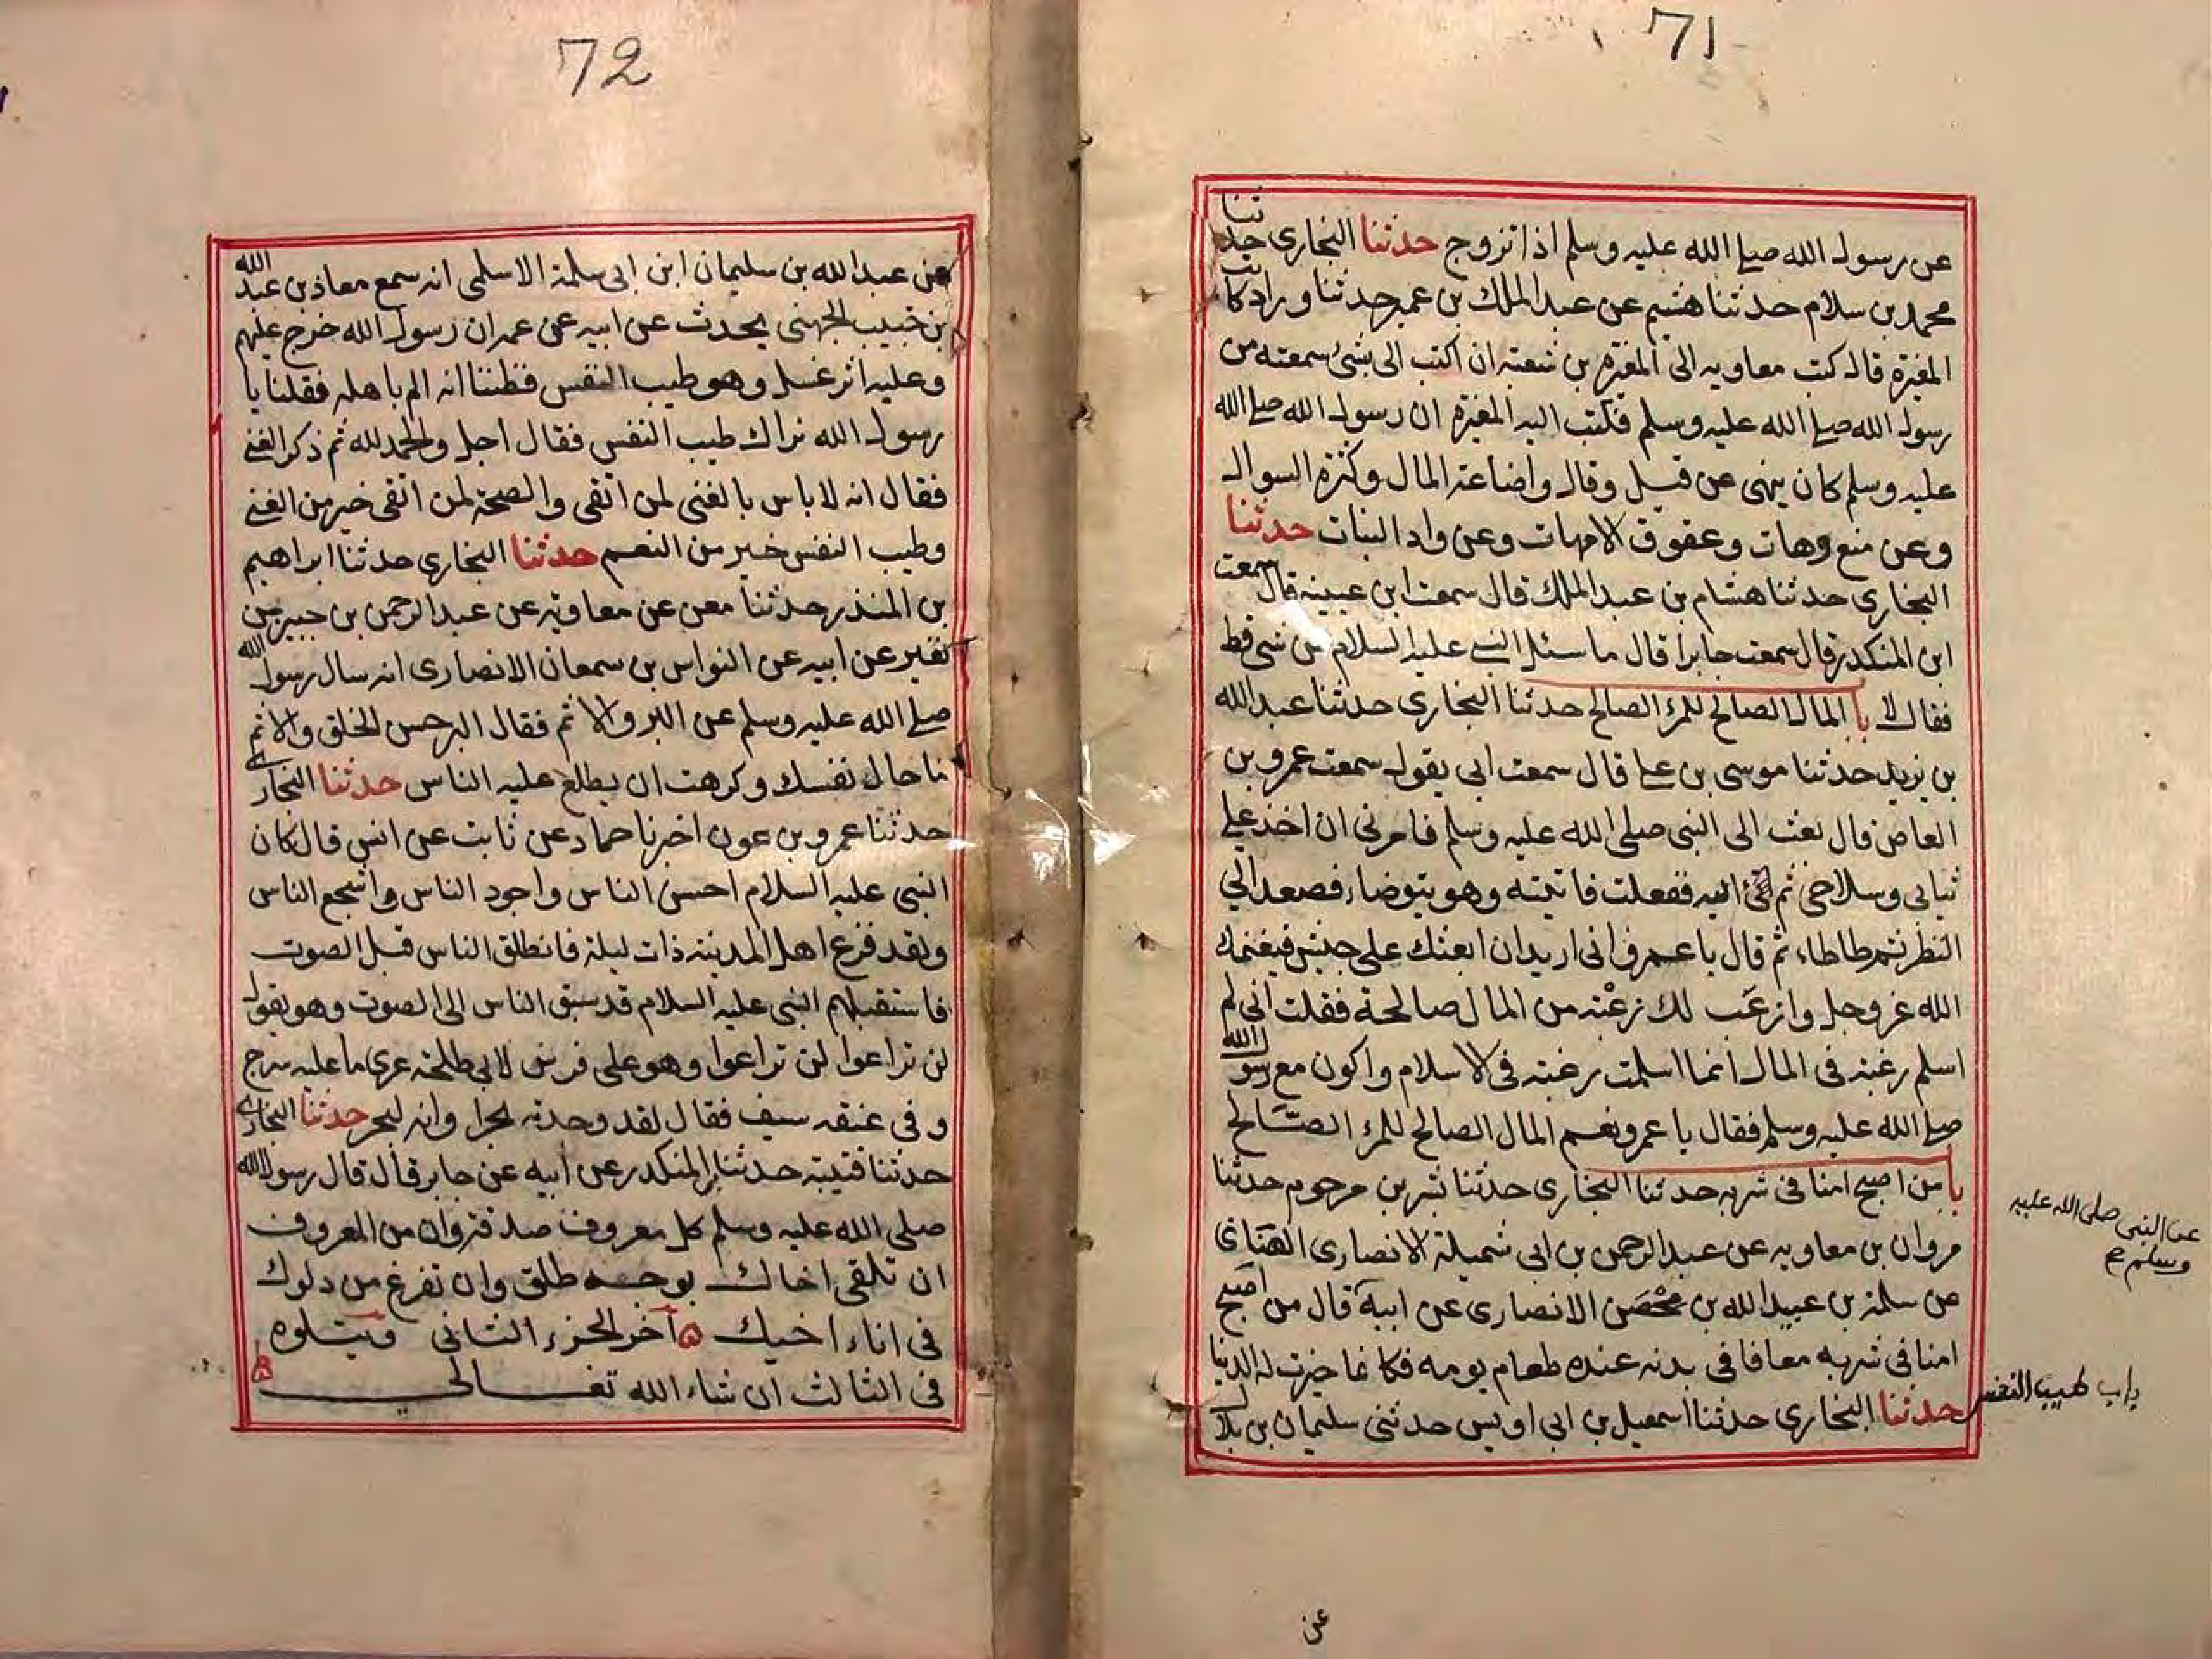 71
عن رسول الله صلى الله عليه وسلم اذا تزوج حدثنا البخارى حدثنا
محمد بن سلام حدثنا هشيم عن عبد الملك بن عمير حدثنا وراد كاتب
المغيرة قال كتب معاويه الى المغيرة بن شعبة ان اكتب الى بشئ سمعته من
رسول الله صلى الله عليه وسلم فكتب اليه المغيرة ان رسول الله صلى الله
عليه وسلم كان ينهى عن قيل وقال واضاعة المال وكثرة السوال
وعن منع وهات وعقوق الامهات وعن واد البنات حدثنا
البخارى حدثنا هشام بن عبد الملك قال سمعت ابن عيينه قال سمعت
ابن المنكدر قال سمعت جابرا قال ما سئل النبى عليه السلام عن شى قط
فقال لا با المال الصالح للمرء الصالح حدثنا البخارى حدثنا عبد الله
بن يزيد حدثنا موسى بن على قال سمعت ابى يقول سمعت عمرو بن
العاص قال بعث الى النبى صلى الله عليه وسلم فامرنى ان اخذ على
ثيابى وسلاحى ثم اليه ففعلت فاتيته وهو يتوضاء فصعد الي
النظر ثم طاطاء ثم قال يا عمرو انى اريد ان ابعثك على جيش فيغنمك
الله عز وجل وازعَب لك زعْبة من المال صالحة فقلت انى لم
اسلم رغبة فى المال انما اسلمت رغبة فى الاسلام واكون مع رسول الله
صلى الله عليه وسلم فقال يا عمرو نعم المال الصالح للمرء الصّالح
با من اصبح امنا فى سربه حدثنا البخارى حدثنا بشر بن مرحوم حدثنا
مروان بن معاويه عن عبد الرحمن بن ابى شميلة الانصارى القبائ
عن سلمة بن عبيد الله بن مْحْصَن الانصارى عن ابيه قال من اصبح
امنا فى سربه معافا فى بدنه عنده طعام يومه فكانما حيزت له الدنيا
حدثنا البخارى حدثنا اسمعيل بن ابى اويس حدثنى سليمان بن بلال
عن النبى صلى الله عليه
وسلم صح
باب طيب النفس
عن
72
عن عبد الله بن سليمان ابن ابى سلمة الاسلمى انه سمع معاذ بن عبد الله
بن خبيب الجهنى يحدث عن ابيه عن عمه ان رسول الله خرج عليهم
وعليه اثر غسل وهو طيب النفس فظننا انه الم باهله فقلنا يا
رسول الله نراك طيب النفس فقال اجل والحمد لله ثم ذكر الغنى
فقال انه لا باس بالغنى لمن اتقى والصحة لمن اتقى خير من الغنى
وطيب النفس خير من النعم حدثنا البخارى حدثنا ابراهيم
بن المنذر حدثنا معن عن معاوية عن عبد الرحمن بن جبير بن
نفير عن ابيه عن النواس بن سمعان الانصارى انه سال رسول الله
صلى الله عليه وسلم عن البر والاثم فقال البر حسن الخلق والاثم
ما حاك نفسك وكرهت ان يطلع عليه الناس حدثنا البخارى
حدثنا عمرو بن عون اخبرنا حماد عن ثابت عن انس قال كان
النبى عليه السلام احسن الناس واجود الناس واشجع الناس
ولقد فزع اهل المدينة ذات ليلة فانطلق الناس قبل الصوت
فاستقبلهم النبى عليه السلام قد سبق الناس الى الصوت وهو يقول
لن تراعوا لن تراعوا وهو على فرس لابى طلحة عرى ما عليه سرج
وفى عنقه سيف فقال لقد وجدته بحرا وانه لبحر حدثنا البخارى
حدثنا قتيبة حدثنا بن المنكدر عن ابيه عن جابر قال قال رسول الله
صلى الله عليه وسلم كل معروف صدقة وان من المعروف
ان تلقى اخاك بوجه طلق وان تفرغ من دلوك
فى اناء اخيك ۵ آخر الجزء الثانى ويتلوه
فى الثالث ان شاء الله تعالى